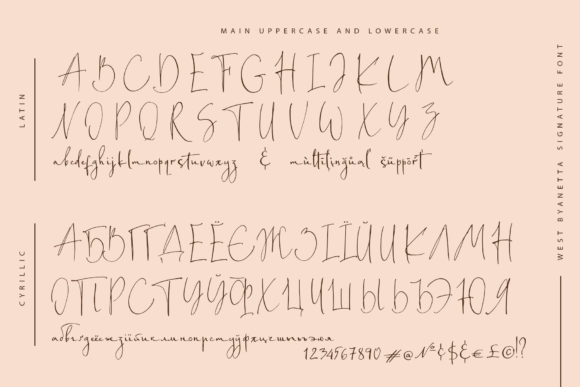 MAIN UPPERCASE AND LOWERCASE
LATIN
ABCDEFGHIJKLM
NOPQRSTUVWXYZ
abcdefghijklmnopqrstuvwxyz & mùltilingŭal šüppořt
CYRILLIC
АБВГҐДЕЁЄЖЗІЇЙИКЛМН
ОПРСТУЎФХЦЧШЫЬЪЭЮЯ
1234567890 #@№&$&€£©!?
WEST BYANETTA SIGNATURE FONT